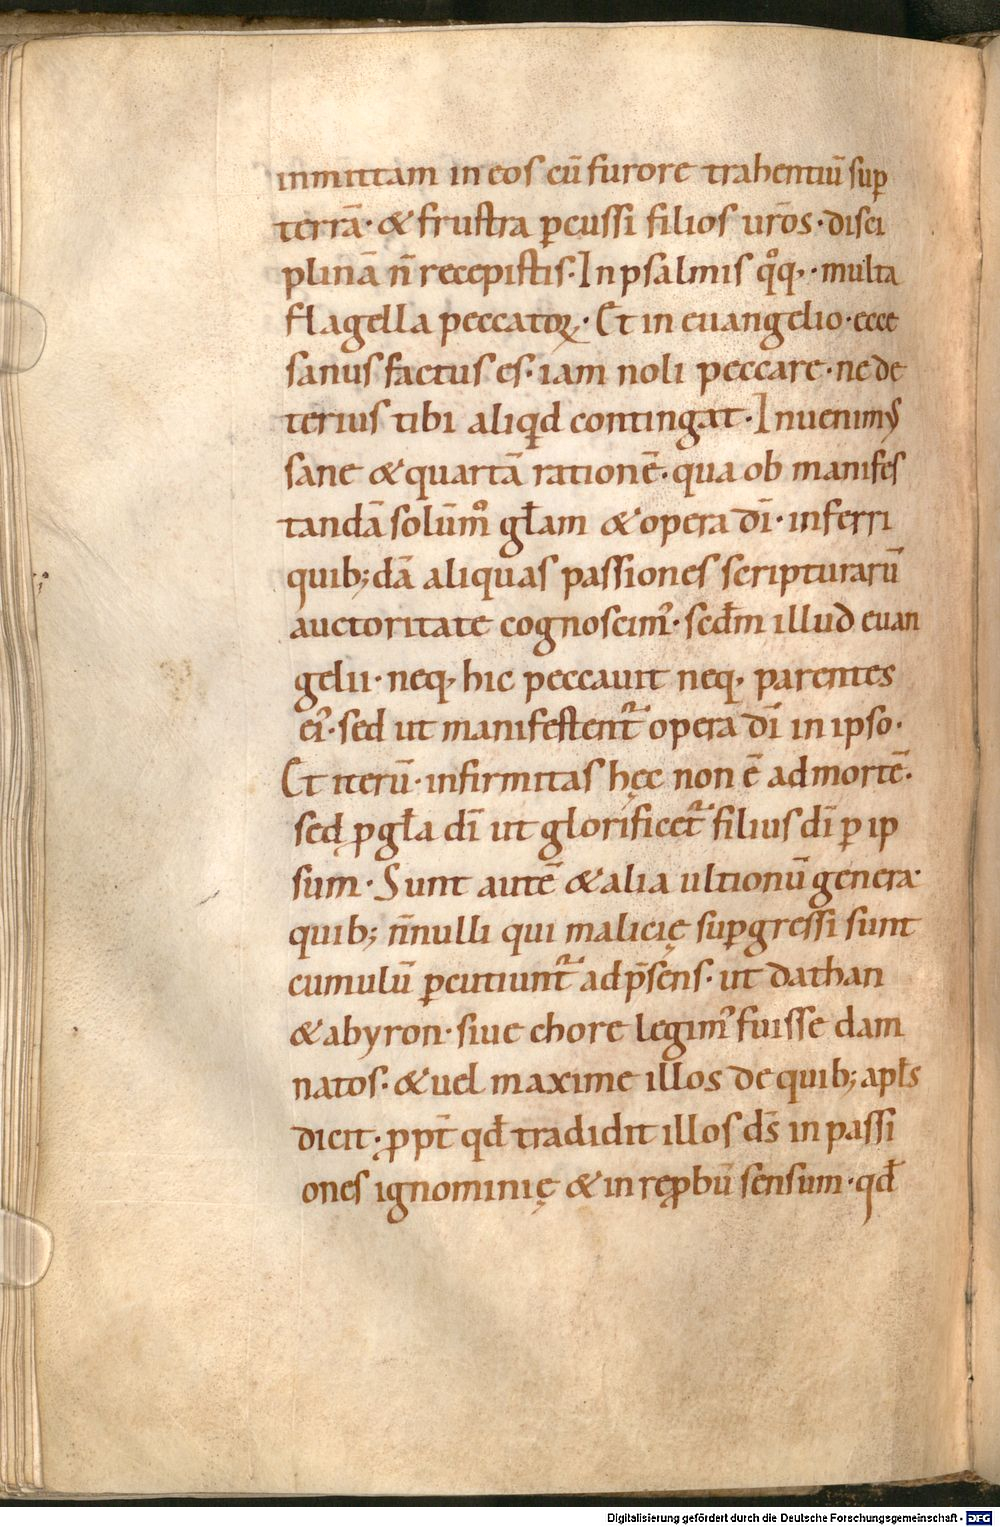 inmittam in eos cū furore trahentiū sup̲
terrā· & frustra p̲cussi filios ur̄os· disci
plinā n̄ recepistis· In psalmis qͦq,· multa
flagella peccatoꝝ· Et in euangelio· ecce
sanus factus es· iam noli peccare· ne de
terius tibi aliqd contingat· Inuenimꝰ
sane & quartā rationē· qua ob manifes
tandā solūmͦ gƚam & opera dī· inferri
quib;dā aliquas passiones scripturarū
auctoritate cognoscimꝰ· scđm illud euan
gelii· neq, hic peccauit neq, parentes
eiꝰ· sed ut manifestent᷑ opera dī in ipso·
Et iterū· infirmitas hęc non ē ad mortē·
sed ꝓ gƚa dī ut glorificet᷑ filius dī ꝑ ip
sum· Sunt autē & alia ultionū genera·
quib; n̄nulli qui malicię suꝑgressi sunt
cumulū ꝑcutiunt᷑ ad p̄sens· ut dathan
& abyron· siue chore legimꝰ fuisse dam
natos· & uel maxime illos de quib; apƚs
dicit· ꝓpt̄ qđ tradidit illos ds̄ in passi
ones ignominię & in reꝓbū sensum· qđ
Digitalisierung gefördert durch die Deutsche Forschungsgemeinschaft - DFG